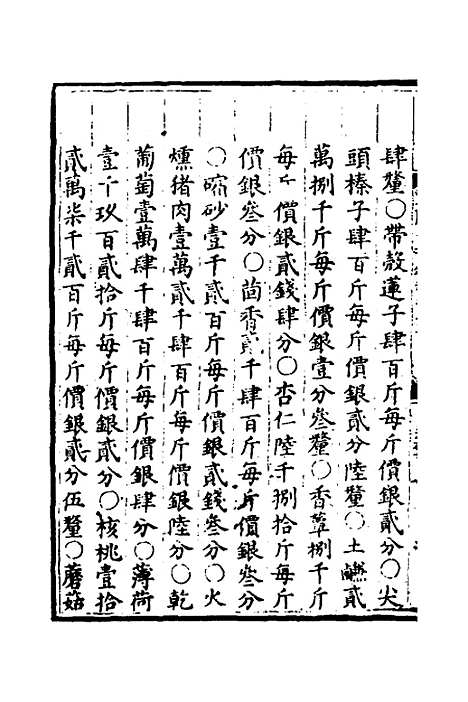 肆釐○帶殼蓮子肆百斤每斤價銀貳分○尖
頭榛子肆百斤每斤價銀貳分陸釐○土鹻貳
萬捌千斤每斤價銀壹分叁釐○香蕈捌千斤
每斤價銀貳錢肆分○杏仁陸千捌拾斤每斤
價銀叁分○茴香貳千肆百斤每斤價銀叁分
○碙砂壹千貳百斤每斤價銀貳錢叁分○火
燻猪肉壹萬貳千肆百斤每斤價銀陸分○乾
葡萄壹萬肆千肆百斤每斤價銀肆分○薄荷
壹千玖百貳拾斤每斤價銀貳分○核桃壹拾
貳萬柒千貳百斤每斤價銀貳分伍釐○蘑菇